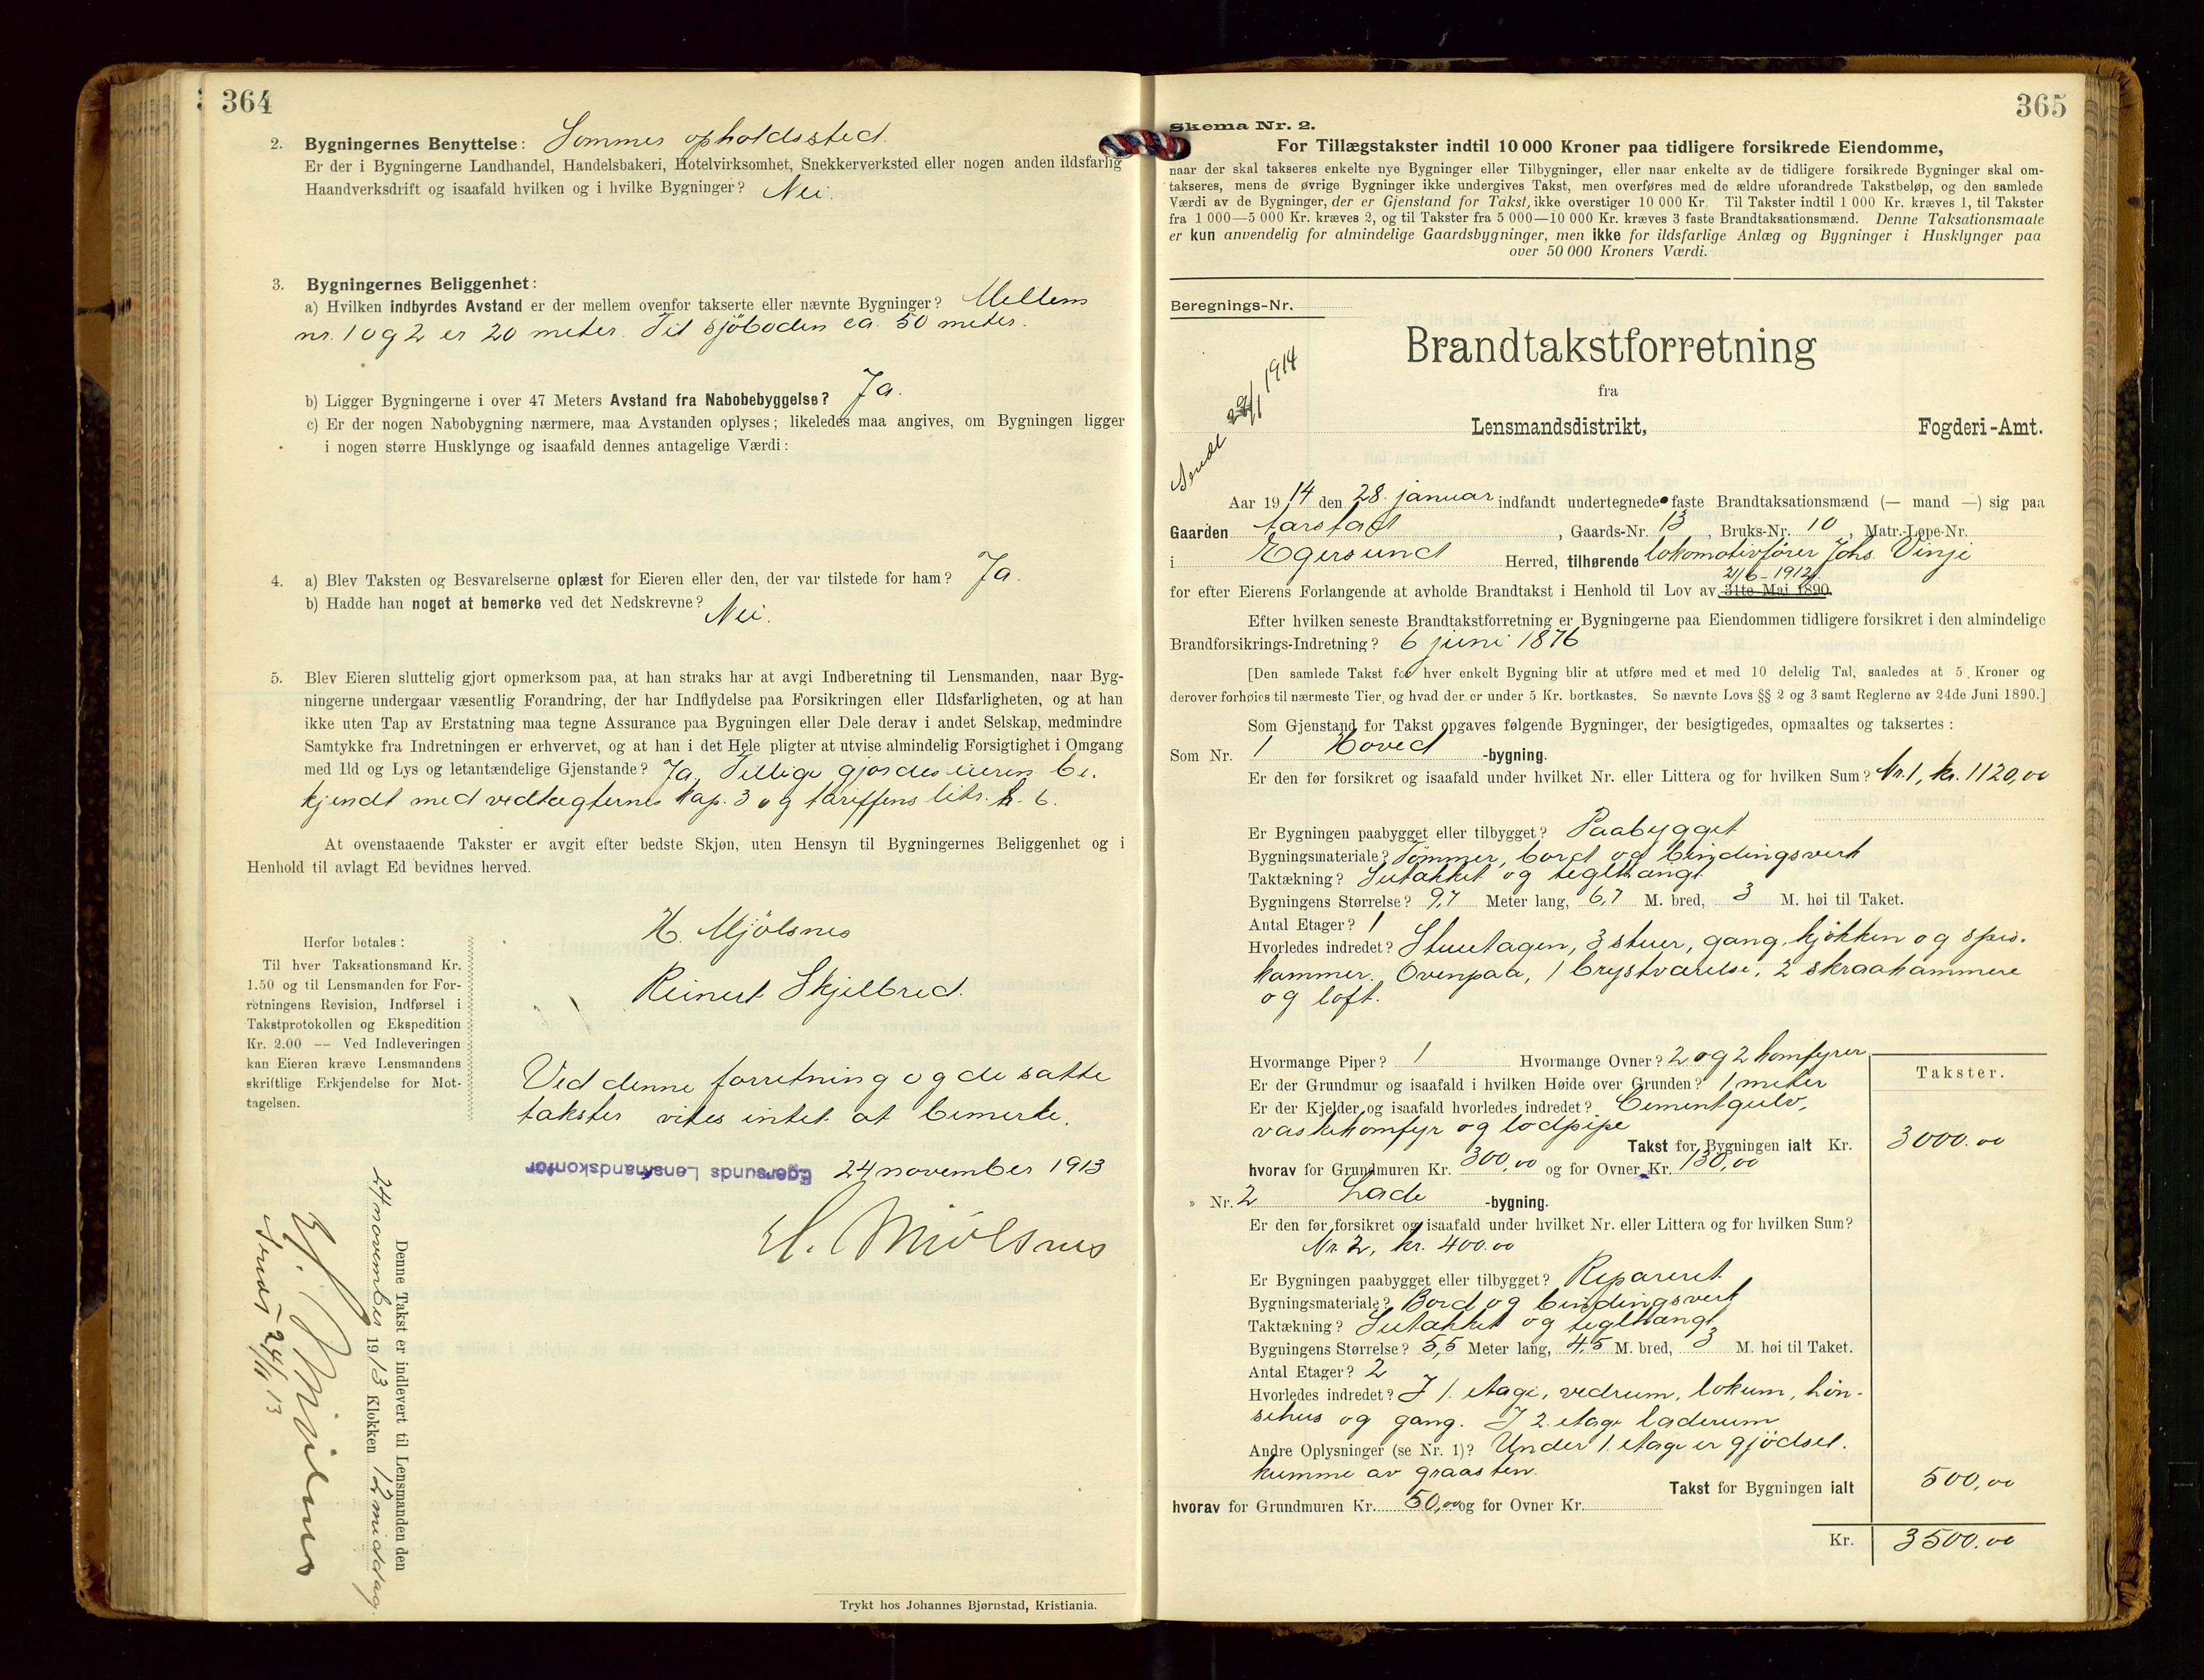 364
2. Bygningernes Benyttelse: Sommer opholdssted.
Er der i Bygningerne Landhandel, Handelsbakeri, Hotelvirksomhet, Snekkerverksted eller nogen anden ildsfarlig
Haandverksdrift og isaafald hvilken og i hvilke Bygninger? Nei.
3. Bygningernes Beliggenhet:
a) Hvilken indbyrdes Avstand er der mellem ovenfor takserte eller nævnte Bygninger? Mellem
nr. 1 og 2 er 20 meter. Til sjöboden ca. 50 meter.
b) Ligger Bygningerne i over 47 Meters Avstand fra Nabobebyggelse? Ja.
c) Er der nogen Nabobygning nærmere, maa Avstanden oplyses; likeledes maa angives, om Bygningen ligger
i nogen større Husklynge og isaafald dennes antagelige Værdi:
4. a) Blev Taksten og Besvarelserne oplæst for Eieren eller den, der var tilstede for ham? Ja.
b) Hadde han noget at bemerke ved det Nedskrevne? Nei.
5. Blev Eieren sluttelig gjort opmerksom paa, at han straks har at avgi Indberetning til Lensmanden, naar Byg-
ningerne undergaar væsentlig Forandring, der har Indflydelse paa Forsikringen eller Ildsfarligheten, og at han
ikke uten Tap av Erstatning maa tegne Assurance paa Bygningen eller Dele derav i andet Selskap, medmindre
Samtykke fra Indretningen er erhvervet, og at han i det Hele pligter at utvise almindelig Forsigtighet i Omgang
med Ild og Lys og letantændelige Gjenstande? Ja. Tillige gjordes eieren be-
kjendt med vedtægternes kap. 3 og tariffens litr. b.
At ovenstaaende Takster er avgit efter bedste Skjøn, uten Hensyn til Bygningernes Beliggenhet og i
Henhold til avlagt Ed bevidnes herved.
H. Mjölsnes
Reinert Skjelbred.
Herfor betales:
Til hver Taksationsmand Kr.
1.50 og til Lensmanden for For-
retningens Revision, Indførsel i
Takstprotokollen og Ekspedition
Kr. 2.00 — Ved Indleveringen
kan Eieren kræve Lensmandens
skriftlige Erkjendelse for Mot-
tagelsen.
Ved denne forretning og de satte
takster vites intet at bemerke.
Egersunds Lensmandskontor 24 november 1913
H. Mjölsnes
Denne Takst er indlevert til Lensmanden den
24 november 1913 Klokken 12 middag.
H. Mjölsnes
Sendt 24/11 13
Trykt hos Johannes Bjørnstad, Kristiania.
365
Skema Nr. 2.
For Tillægstakster indtil 10 000 Kroner paa tidligere forsikrede Eiendomme,
naar der skal takseres enkelte nye Bygninger eller Tilbygninger, eller naar enkelte av de tidligere forsikrede Bygninger skal om-
takseres, mens de øvrige Bygninger ikke undergives Takst, men overføres med de ældre uforandrede Takstbeløp, og den samlede
Værdi av de Bygninger, der er Gjenstand for Takst, ikke overstiger 10 000 Kr. Til Takster indtil 1 000 Kr. kræves 1, til Takster
fra 1 000—5 000 Kr. kræves 2, og til Takster fra 5 000—10 000 Kr. kræves 3 faste Brandtaksationsmænd. Denne Taksationsmaate
er kun anvendelig for almindelige Gaardsbygninger, men ikke for ildsfarlige Anlæg og Bygninger i Husklynger paa
over 50 000 Kroners Værdi.
Beregnings-Nr.
Brandtakstforretning
fra
Lensmandsdistrikt, Fogderi-Amt.
Sendt 1914
Aar 1914 den 28. januar indfandt undertegnede faste Brandtaksationsmænd (— mand —) sig paa
Gaarden Aarstad, Gaards-Nr. 13, Bruks-Nr. 10, Matr.-Løpe-Nr.
i Egersund Herred, tilhørende lokomotivfører Johs. Vinje
21/6-1912
for efter Eierens Forlangende at avholde Brandtakst i Henhold til Lov av 31te Mai 1890.
Efter hvilken seneste Brandtakstforretning er Bygningerne paa Eiendommen tidligere forsikret i den almindelige
Brandforsikrings-Indretning? 6 juni 1876
[Den samlede Takst for hver enkelt Bygning blir at utføre med et med 10 delelig Tal, saaledes at 5 Kroner og
derover forhøies til nærmeste Tier, og hvad der er under 5 Kr. bortkastes. Se nævnte Lovs §§ 2 og 3 samt Reglerne av 24de Juni 1890.]
Som Gjenstand for Takst opgaves følgende Bygninger, der besigtigedes, opmaaltes og taksertes:
Som Nr. 1 Hoved -bygning.
Er den før forsikret og isaafald under hvilket Nr. eller Littera og for hvilken Sum? Nr. 1, kr. 1120,00
Er Bygningen paabygget eller tilbygget? Paabygget
Bygningsmateriale? Tömmer, bord og bindingsverk
Taktækning? Sutakket og teglhængt
Bygningens Størrelse? 9,7 Meter lang, 6,7 M. bred, 3 M. høi til Taket.
Antal Etager? 1
Hvorledes indredet? Stuetagen, 3 stuer, gang, kjøkken og spis-
kammer. Ovenpaa, 1 brystværelse, 2 skraakammere
og loft.
Hvormange Piper? 1 Hvormange Ovner? 2 og 2 komfyrer
Takster.
Er der Grundmur og isaafald i hvilken Høide over Grunden? 1 meter
Er der Kjelder og isaafald hvorledes indredet? Cementgulv,
vaskekomfyr og lodpipe
Takst for Bygningen ialt Kr. 3000.00
hvorav for Grundmuren Kr. 300,00 og for Ovner Kr. 130,00
» Nr. 2 Lade -bygning.
Er den før forsikret og isaafald under hvilket Nr. eller Littera og for hvilken Sum?
Nr. 2, kr. 400.00
Er Bygningen paabygget eller tilbygget? Reparert
Bygningsmateriale? Bord og bindingsverk
Taktækning? Sutakket og teglhængt
Bygningens Størrelse? 5,5 Meter lang, 4,5 M. bred, 3 M. høi til Taket.
Antal Etager? 2
Hvorledes indredet? I 1. etage, vedrum, lokum, høn-
sehus og gang. I 2. etage laderum
Andre Oplysninger (se Nr. 1)? Under 1. etage er gjödsel-
kumme av graasten.
Takst for Bygningen ialt 500,00
hvorav for Grundmuren Kr. 50,00 og for Ovner Kr.
Kr. 3500.00